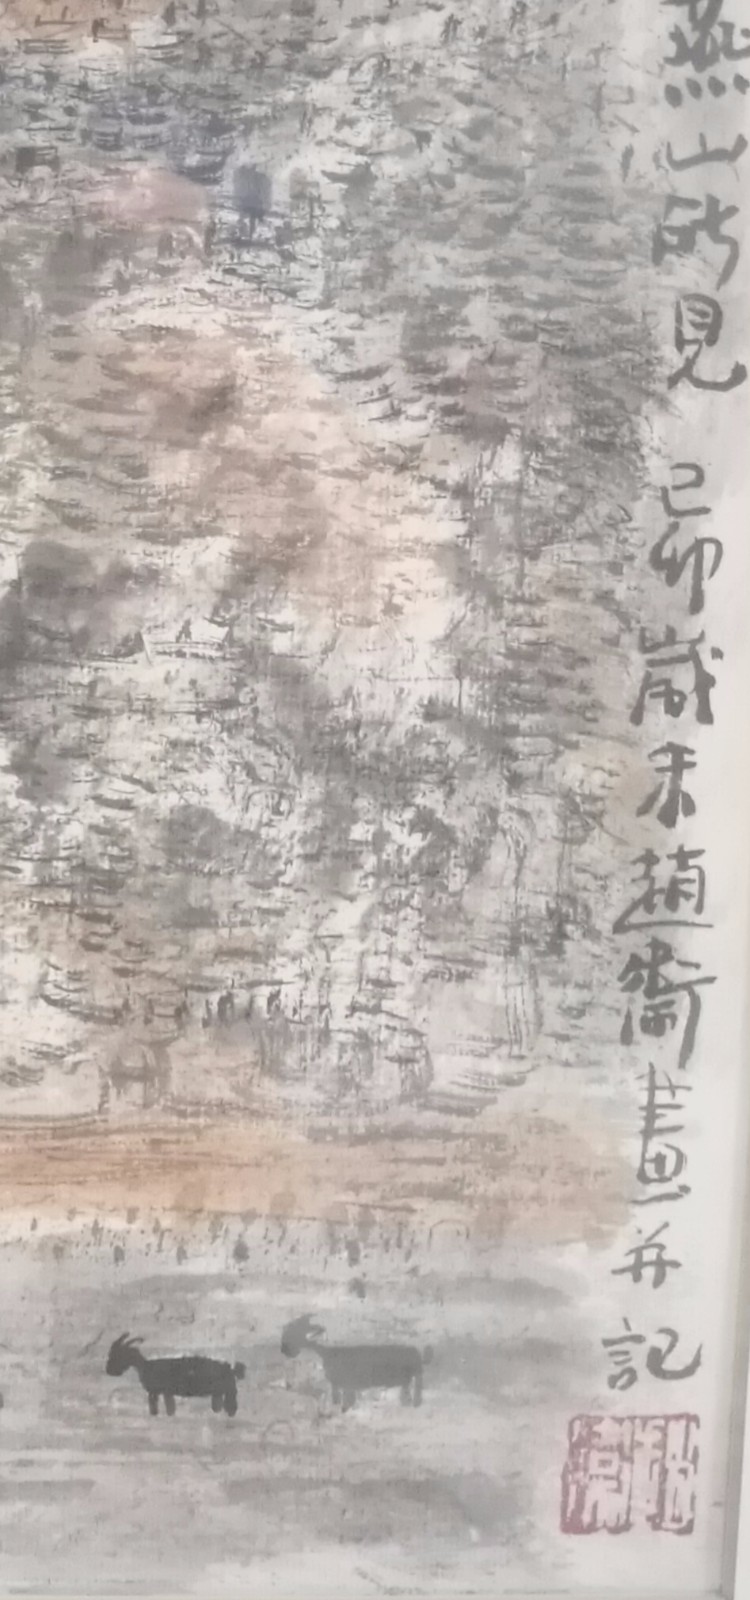 燕山所見 己卯歲末趙衛畫并記